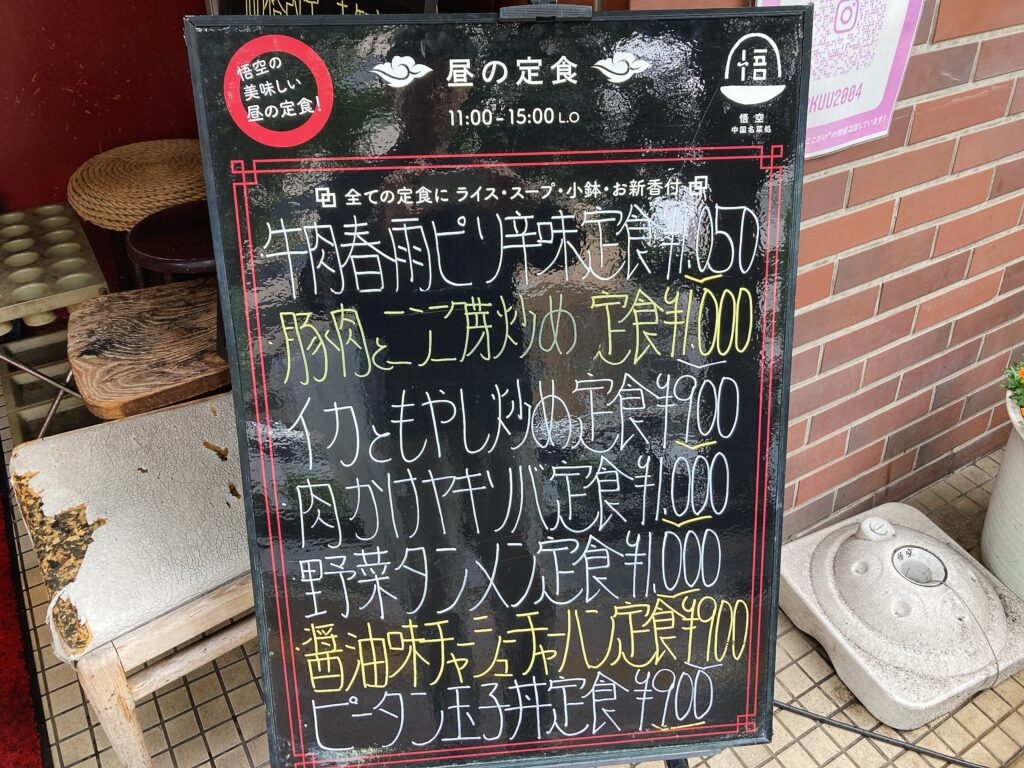 悟空の
美味しい
昼の定食!
昼の定食
11:00-15:00 L.O
悟
悟空
中国名菜処
KUU2004
全ての定食に ライス・スープ・小鉢・お新香付
牛肉春雨ピリ辛味定食¥1,050
豚肉とニンニク芽炒め 定食¥1,000
イカともやし炒め定食¥900
肉かけヤキソバ定食¥1,000
野菜タンメン定食¥1,000
醤油味チャーシューチャーハン定食¥900
ピータン玉子丼定食¥900